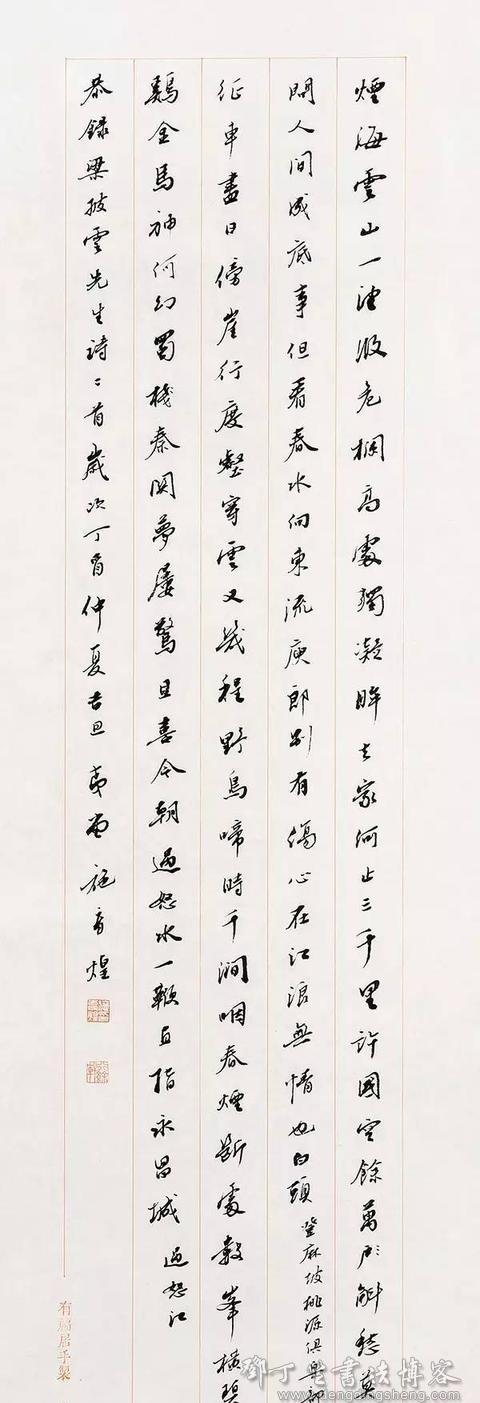 煙海雲山一望收危欄高處獨凝眸去家何止三千里許國空餘萬斛愁莫
問人間成底事但看春水向東流庾郎別有傷心在江浪無情也白頭 登麻坡桃源俱樂部
征車盡日傍崖行度壑穿雲又幾程野鳥啼時千澗咽春煙斷處數峯橫碧
鷄金馬神何幻蜀棧秦關夢屢驚且喜今朝過怒水一鞭直指永昌城 過怒江
恭錄梁披雲先生詩二首歲次丁酉仲夏吉旦 施 煌
有 居手製
鄧丁生書法博客
www.dengdingsheng.com